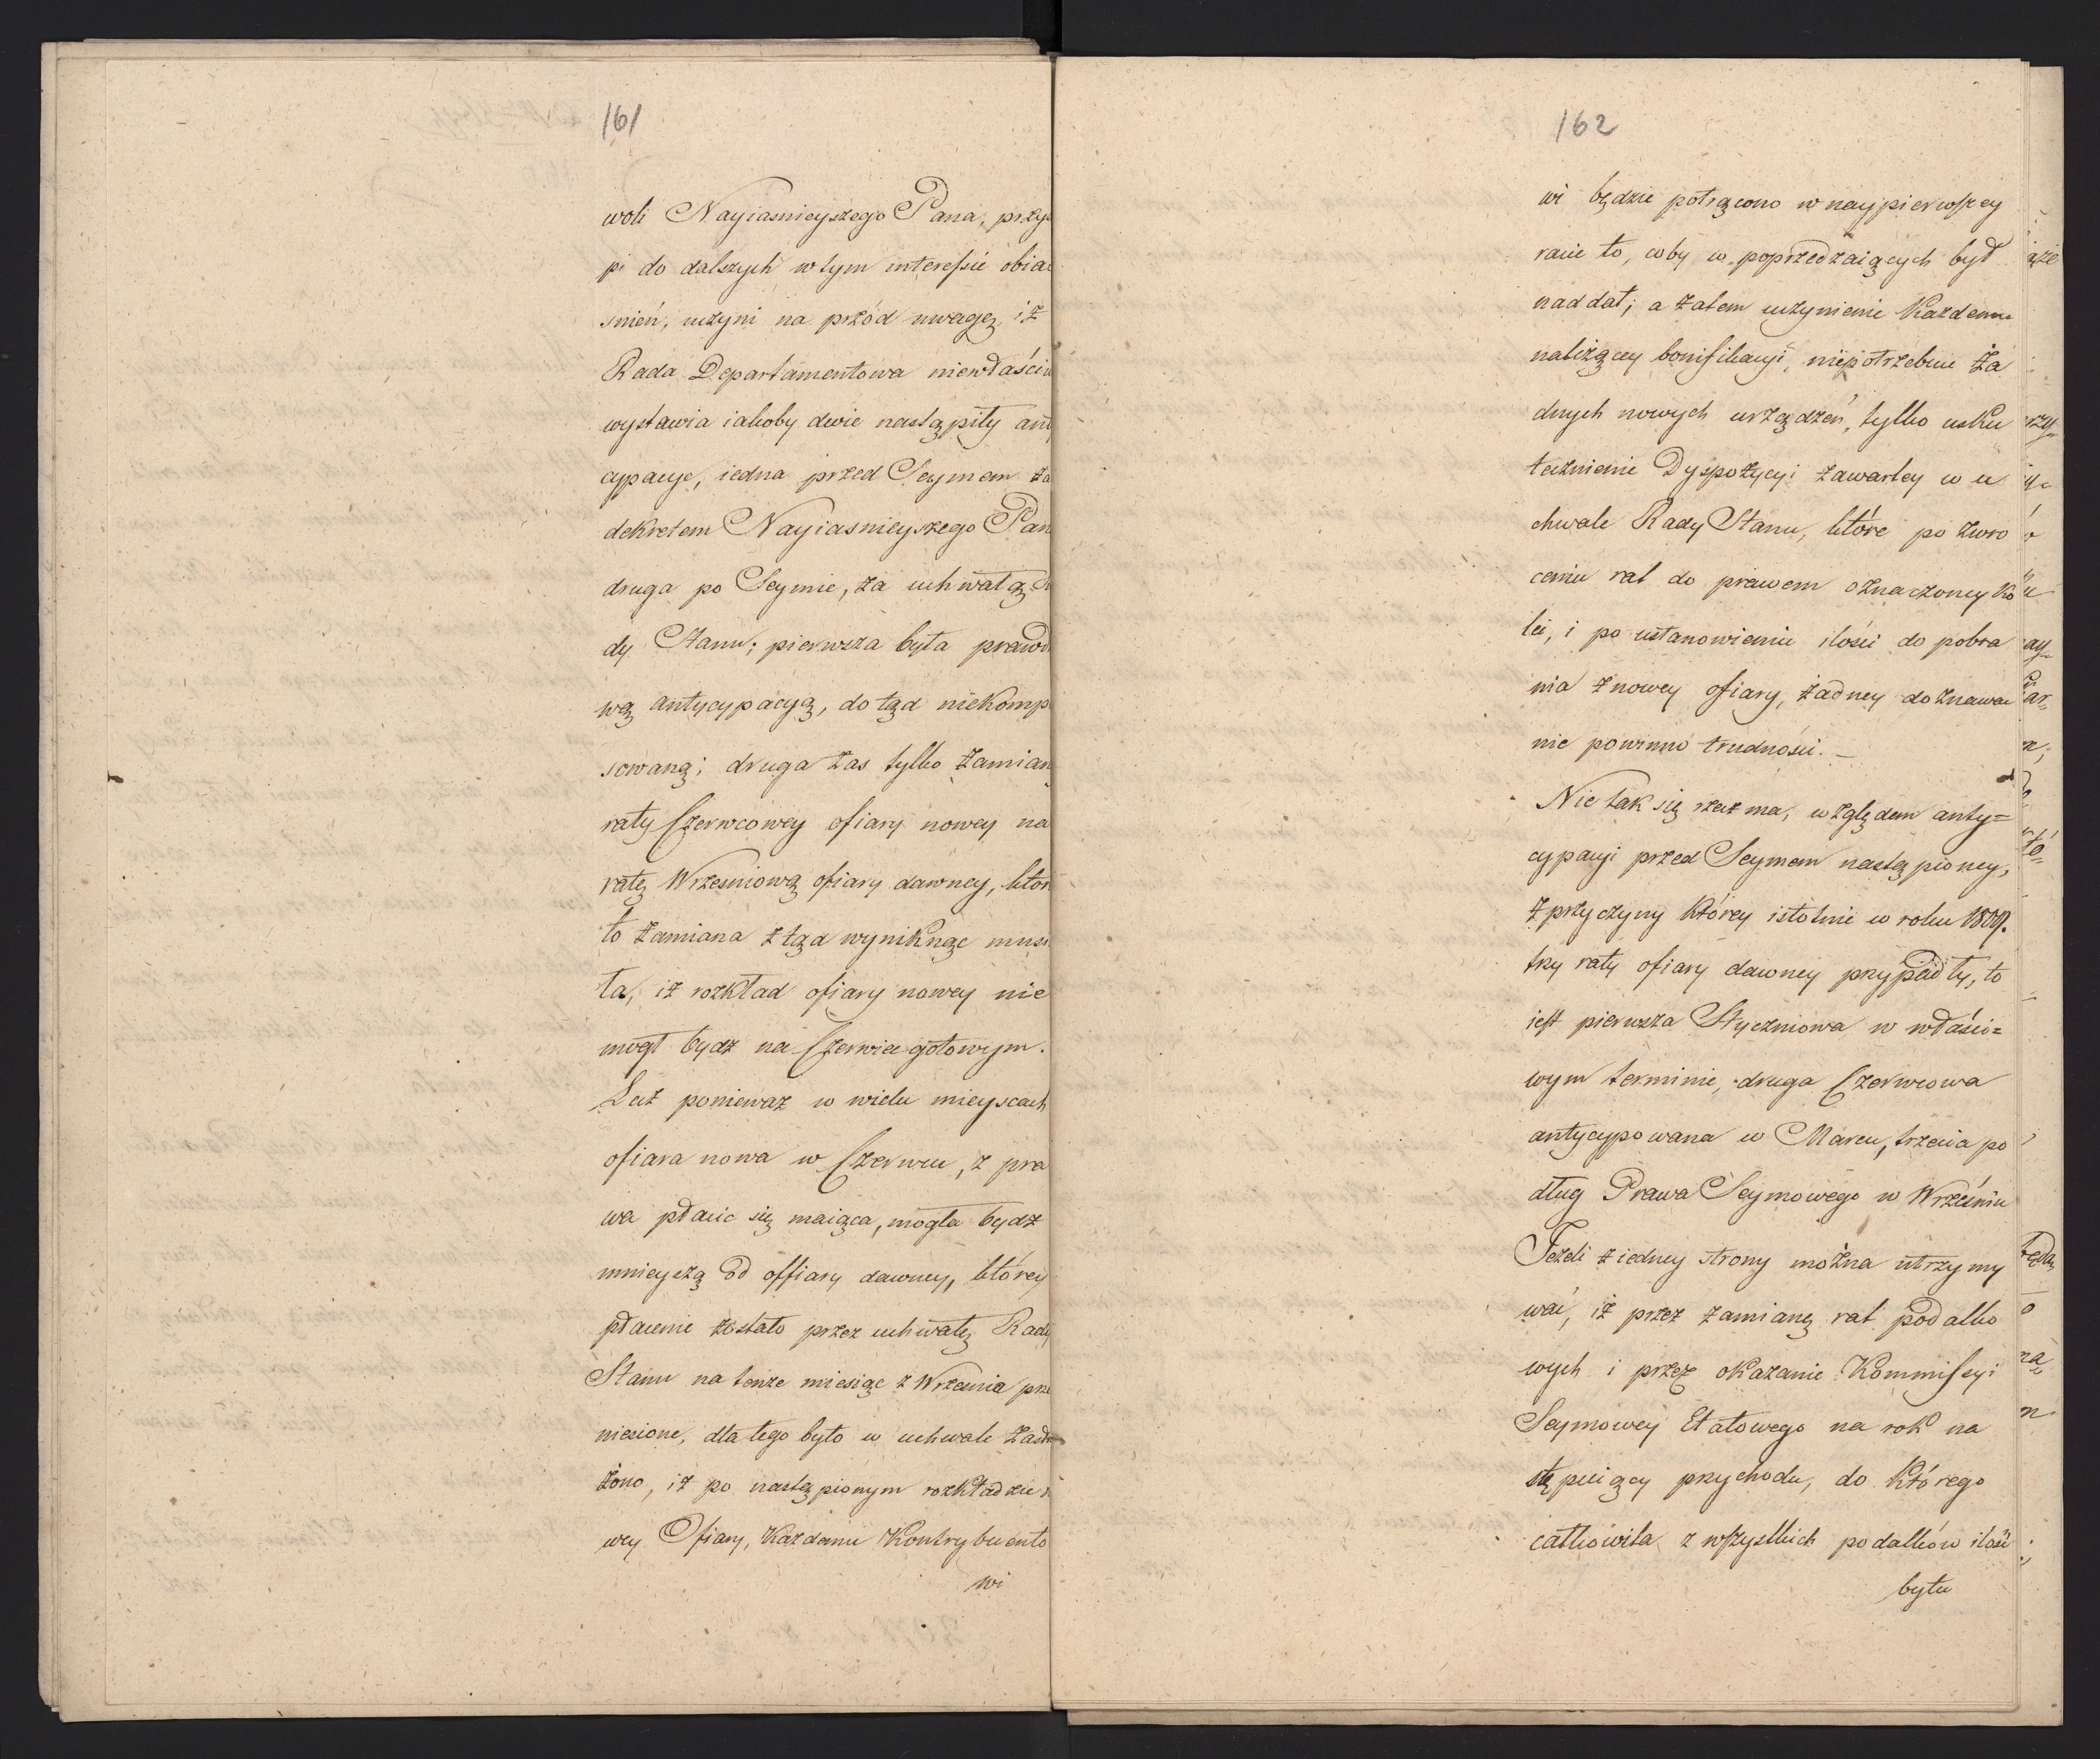 161
woli Nayiasnieyszego Pana, przys
pi do dalszych w tym interessie obia
snień, uczyni na przód uwagę, iż
Rada Departamentowa niewłaści
wystawia iakoby dwie nastąpiły an
cypacye, iedna przed Seymem za
dekretem Nayiasnieyszego Pan
druga po Seymie, za uchwałą
dy Stanu; pierwsza była prawd
wą antycypacyą, do tąd niekomp
sowaną; druga zas tylko zamian
raty Czerwcowey ofiary nowey na
ratę Wrzesniową ofiary dawney, któr
to zamiana z tąd wyniknąc musi
ła, iż rozkład ofiary nowey nie
mógł bydz na Czerwiec gotowym.
Lecz ponieważ w wielu mieyscach
ofiara nowa w Czerwcu, z pra
wa płacic się maiąca, mogła bydz
mnieyszą od offiary dawney, którey
płacenie zostało przez uchwałę Rady
Stanu na tenże miesiąc z Wrzesnia prze
niesione, dla tego było w uchwale zastr
żono, iż po nastąpionym rozkładzie
wey Ofiary, Każdemu Kontrybuento
wi
162
wi będzie potrącono w naypierwszey
racie to, coby w poprzedzaiących był
naddał; a zatem uczynienie Każdemu
należącey bonifikacyi, niepotrzebuie ża
dnych nowych urządzeń, tylko usku
tecznienie Dyspozycyi zawartey w u
chwale Rady Stanu, które po zwro
ceniu rat do prawem oznaczoney ko
lei, i po ustanowieniu ilości do pobra
nia z nowey ofiary, żadney doznawac
nie powinno trudności. —
Nie tak się rzecz ma, względem anty=
cypacyi przed Seymem nastąpioney,
z przyczyny Którey istotnie w roku 1809.
trzy raty ofiary dawney przypadły, to
iest pierwsza Styczniowa w właści=
wym terminie, druga Czerwcowa
antycypowana w Marcu, trzecia po
dług Prawa Seymowego w Wrześniu
Jeżeli z iedney strony można utrzymy
wać, iż przez zamianę rat podatko
wych i przez okazanie Kommissyi
Seymowey Etatowego na rok na
stępuiący przychodu, do Którego
całkowita z wszystkich podatków ilość
była